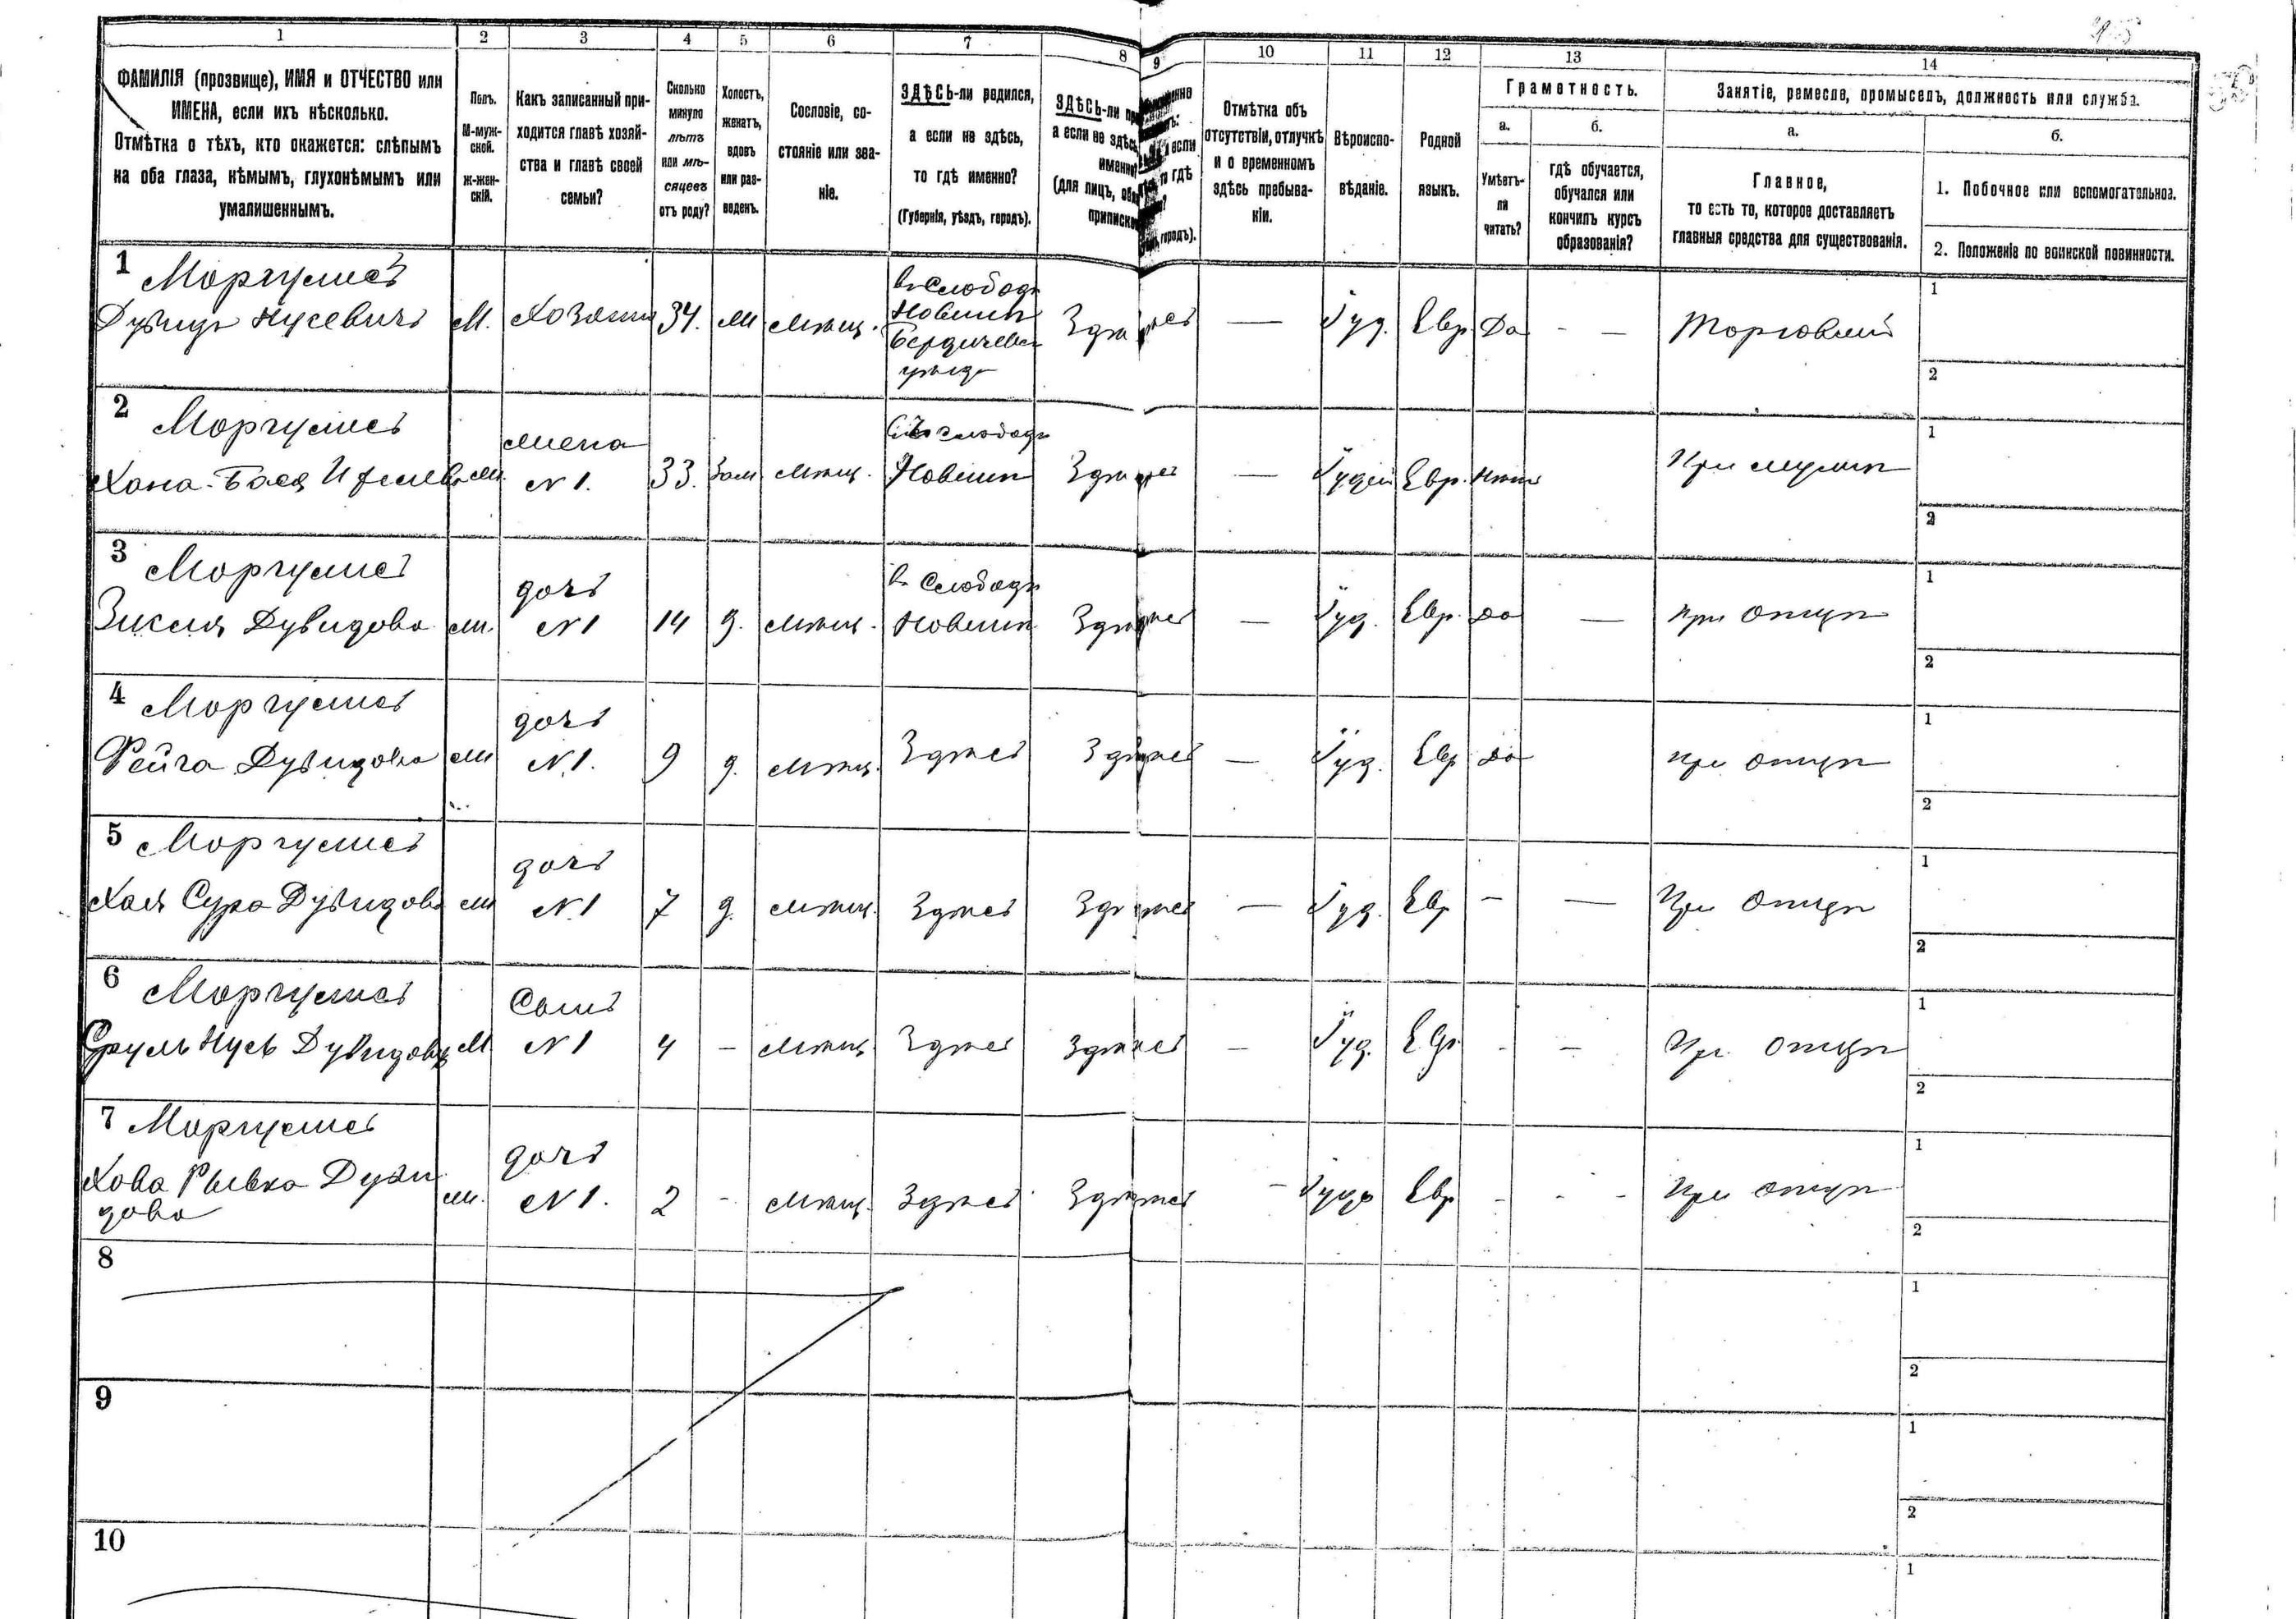 1 2 3 4 5 6 7 8 9 10 11 12 13 14
ФАМИЛІЯ (прозвище), ИМЯ и ОТЧЕСТВО или
ИМЕНА, если ихъ нѣсколько.
Отмѣтка о тѣхъ, кто окажется: слѣпымъ
на оба глаза, нѣмымъ, глухонѣмымъ или
умалишеннымъ.
Полъ.
М-муж-
ской.
Ж-жен-
скій.
Какъ записанный при-
ходится главѣ хозяй-
ства и главѣ своей
семьи?
Сколько
минуло
лѣтъ
или мѣ-
сяцевъ
отъ роду?
Холостъ,
женатъ,
вдовъ
или раз-
веденъ.
Сословіе, со-
стояніе или зва-
ніе.
ЗДѢСЬ-ли родился,
а если не здѣсь,
то гдѣ именно?
(Губернія, уѣздъ, городъ).
ЗДѢСЬ-ли
а если не здѣсь
именно
(для лицъ,
если
гдѣ
городъ).
Отмѣтка объ
отсутствіи, отлучкѣ
и о временномъ
здѣсь пребыва-
ніи.
Вѣроиспо-
вѣданіе.
Родной
языкъ.
Грамотность.
а.
Умѣетъ-
ли
читать?
б.
гдѣ обучается,
обучался или
кончилъ курсъ
образованія?
Занятіе, ремесло, промыселъ, должность или служба.
а.
Главное,
то есть то, которое доставляетъ
главныя средства для существованія.
б.
1. Побочное или вспомогательное.
2. Положеніе по воинской повинности.
1 Моргулисъ
Дувидъ Нусевичъ М. Хозяинъ 34. Ж Мѣщ. въ Слободѣ Новикъ Бердичевск уѣзда Здѣсь — Іуд. Евр. Да - — Торговлей 1 2
2 Моргулисъ
Хана-Бася ж. жена N 1. 33. Зам мѣщ. слободѣ Здѣсь — Іудей Евр. Нѣтъ При мужѣ 1 2
3 Моргулисъ
Дувидова ж. дочь N 1 14 д. мѣщ. въ Слободѣ Здѣсь — Іуд. Евр. да — При отцѣ 1 2
4 Моргулисъ
Фейга Дувидова ж дочь N. 1. 9 д. мѣщ. Здѣсь Здѣсь — Іуд. Евр да При отцѣ 1 2
5 Моргулисъ
Хая Сура Дувидова ж дочь N. 1 7 д. мѣщ. Здѣсь Здѣсь — Іуд. Евр - — При отцѣ 1 2
6 Моргулисъ
Сруль Нусь Дувидовъ М сынъ N 1 4 - мѣщ Здѣсь Здѣсь — Іуд. Евр. - — При отцѣ 1 2
7 Моргулисъ
Хова Рывка Дуви
дова ж. дочь N 1. 2 - мѣщ. Здѣсь Здѣсь - Іуд Евр - - - При отцѣ 1 2
8 1 2
9 1 2
10 1